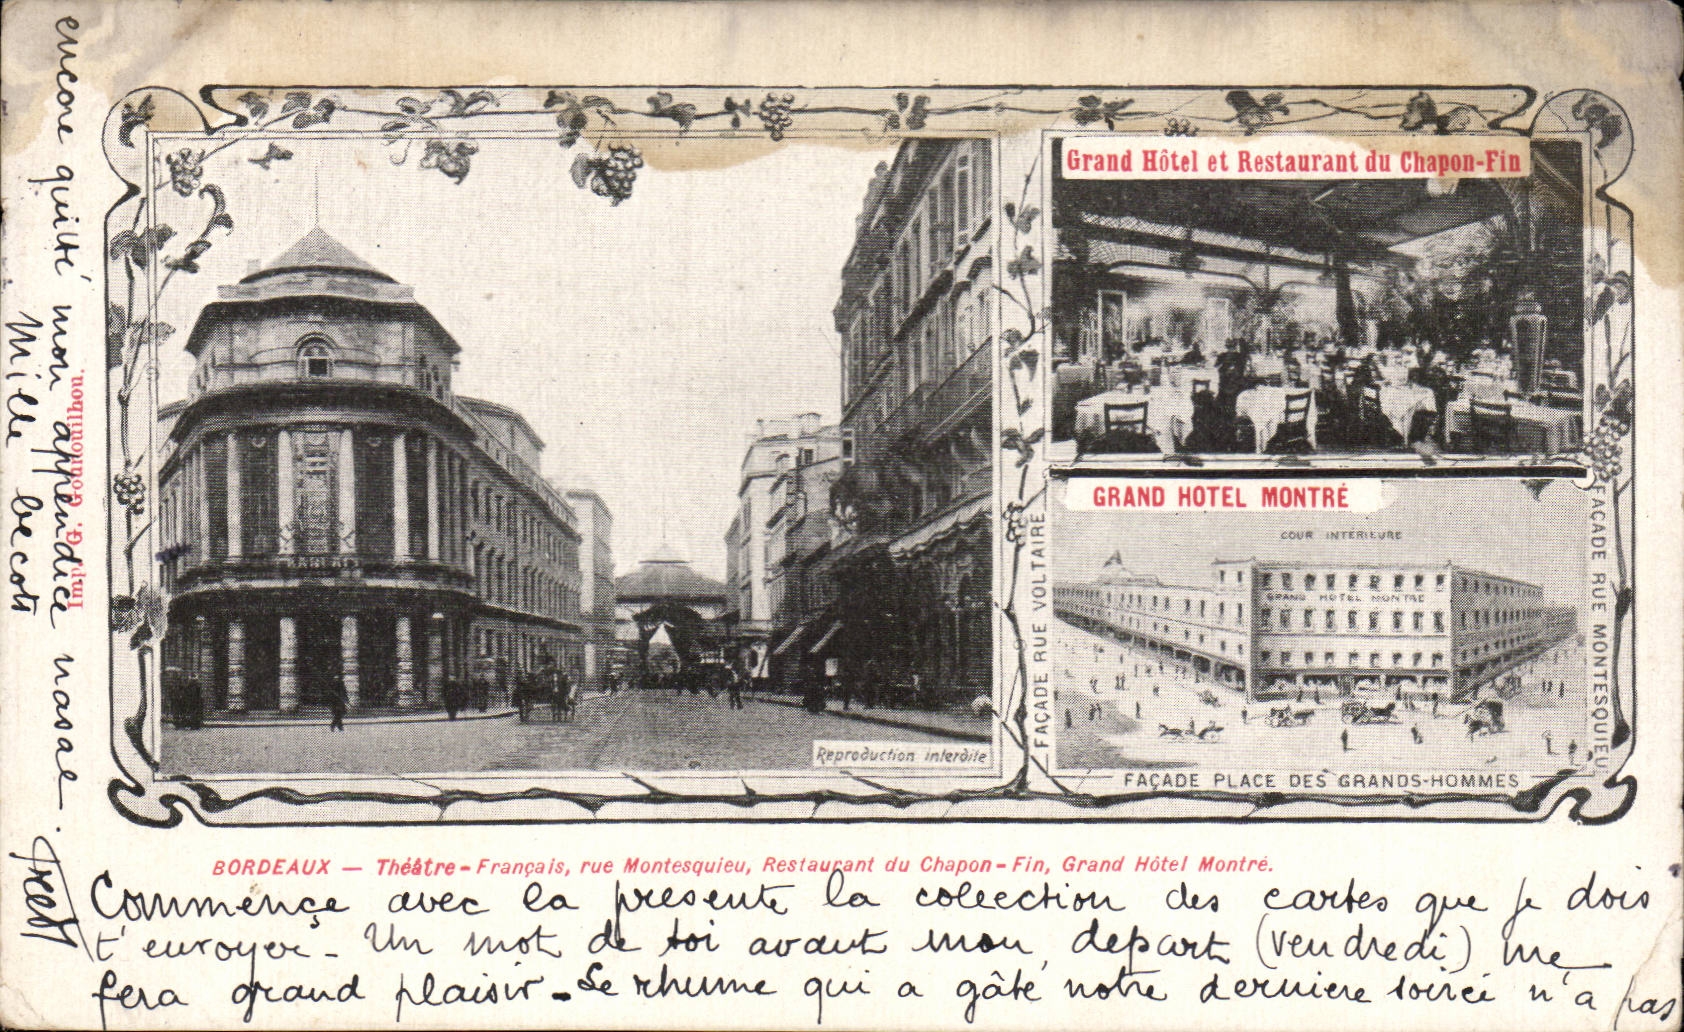 Grand Hôtel et Restaurant du Chapon-Fin
GRAND HOTEL MONTRÉ
COUR INTÉRIEURE
GRAND HOTEL MONTRÉ
FAÇADE RUE VOLTAIRE
FAÇADE RUE MONTESQUIEU
FAÇADE PLACE DES GRANDS-HOMMES
Reproduction interdite
Imp. G. Gounouilhou.
BORDEAUX — Théâtre-Français, rue Montesquieu, Restaurant du Chapon-Fin, Grand Hôtel Montré.
Commençe avec la presente la collection des cartes que je dois
t'envoyer - Un mot de toi avant mon depart (vendredi) me
fera grand plaisir - Le rhume qui a gâté notre derniere soirée n'a pas
encore quitté mon appendice nasae.
Mille becots